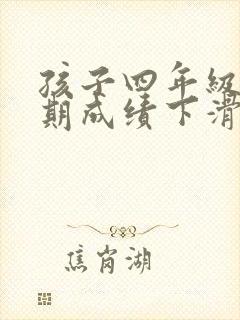 孩子四年级
期成绩下滑
焦岗湖